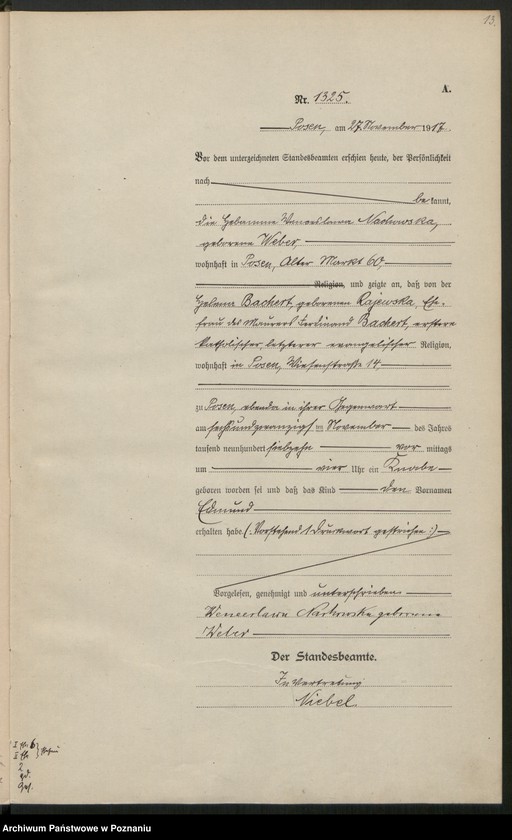 13.
A.
Nr. 1325.
Posen, am 27. November 1917.
Vor dem unterzeichneten Standesbeamten erschien heute, der Persönlichkeit
nach
bekannt,
die Hebamme Wenceslawa Nachowska,
geborene Weber,
wohnhaft in Posen, Alter Markt 60,
Religion, und zeigte an, daß von der
Helena Bachert, geborenen Rajewska, Ehe-
frau des Maurers Ferdinand Bachert, erstere
katholischer, letzterer evangelischer Religion,
wohnhaft in Posen, Wiesenstraße 14
zu Posen, ebenda in ihrer Gegenwart
am sechsundzwanzigsten November des Jahres
tausend neunhundert siebzehn vor mittags
um vier Uhr ein Knabe
geboren worden sei und daß das Kind den Vornamen
Edmund
erhalten habe. (: Vorstehend 1 Druckwort gestrichen :)
Vorgelesen, genehmigt und unterschrieben
Wenceslawa Nachowska geborene
Weber
Der Standesbeamte.
In Vertretung
Niebel
2
Archiwum Państwowe w Poznaniu